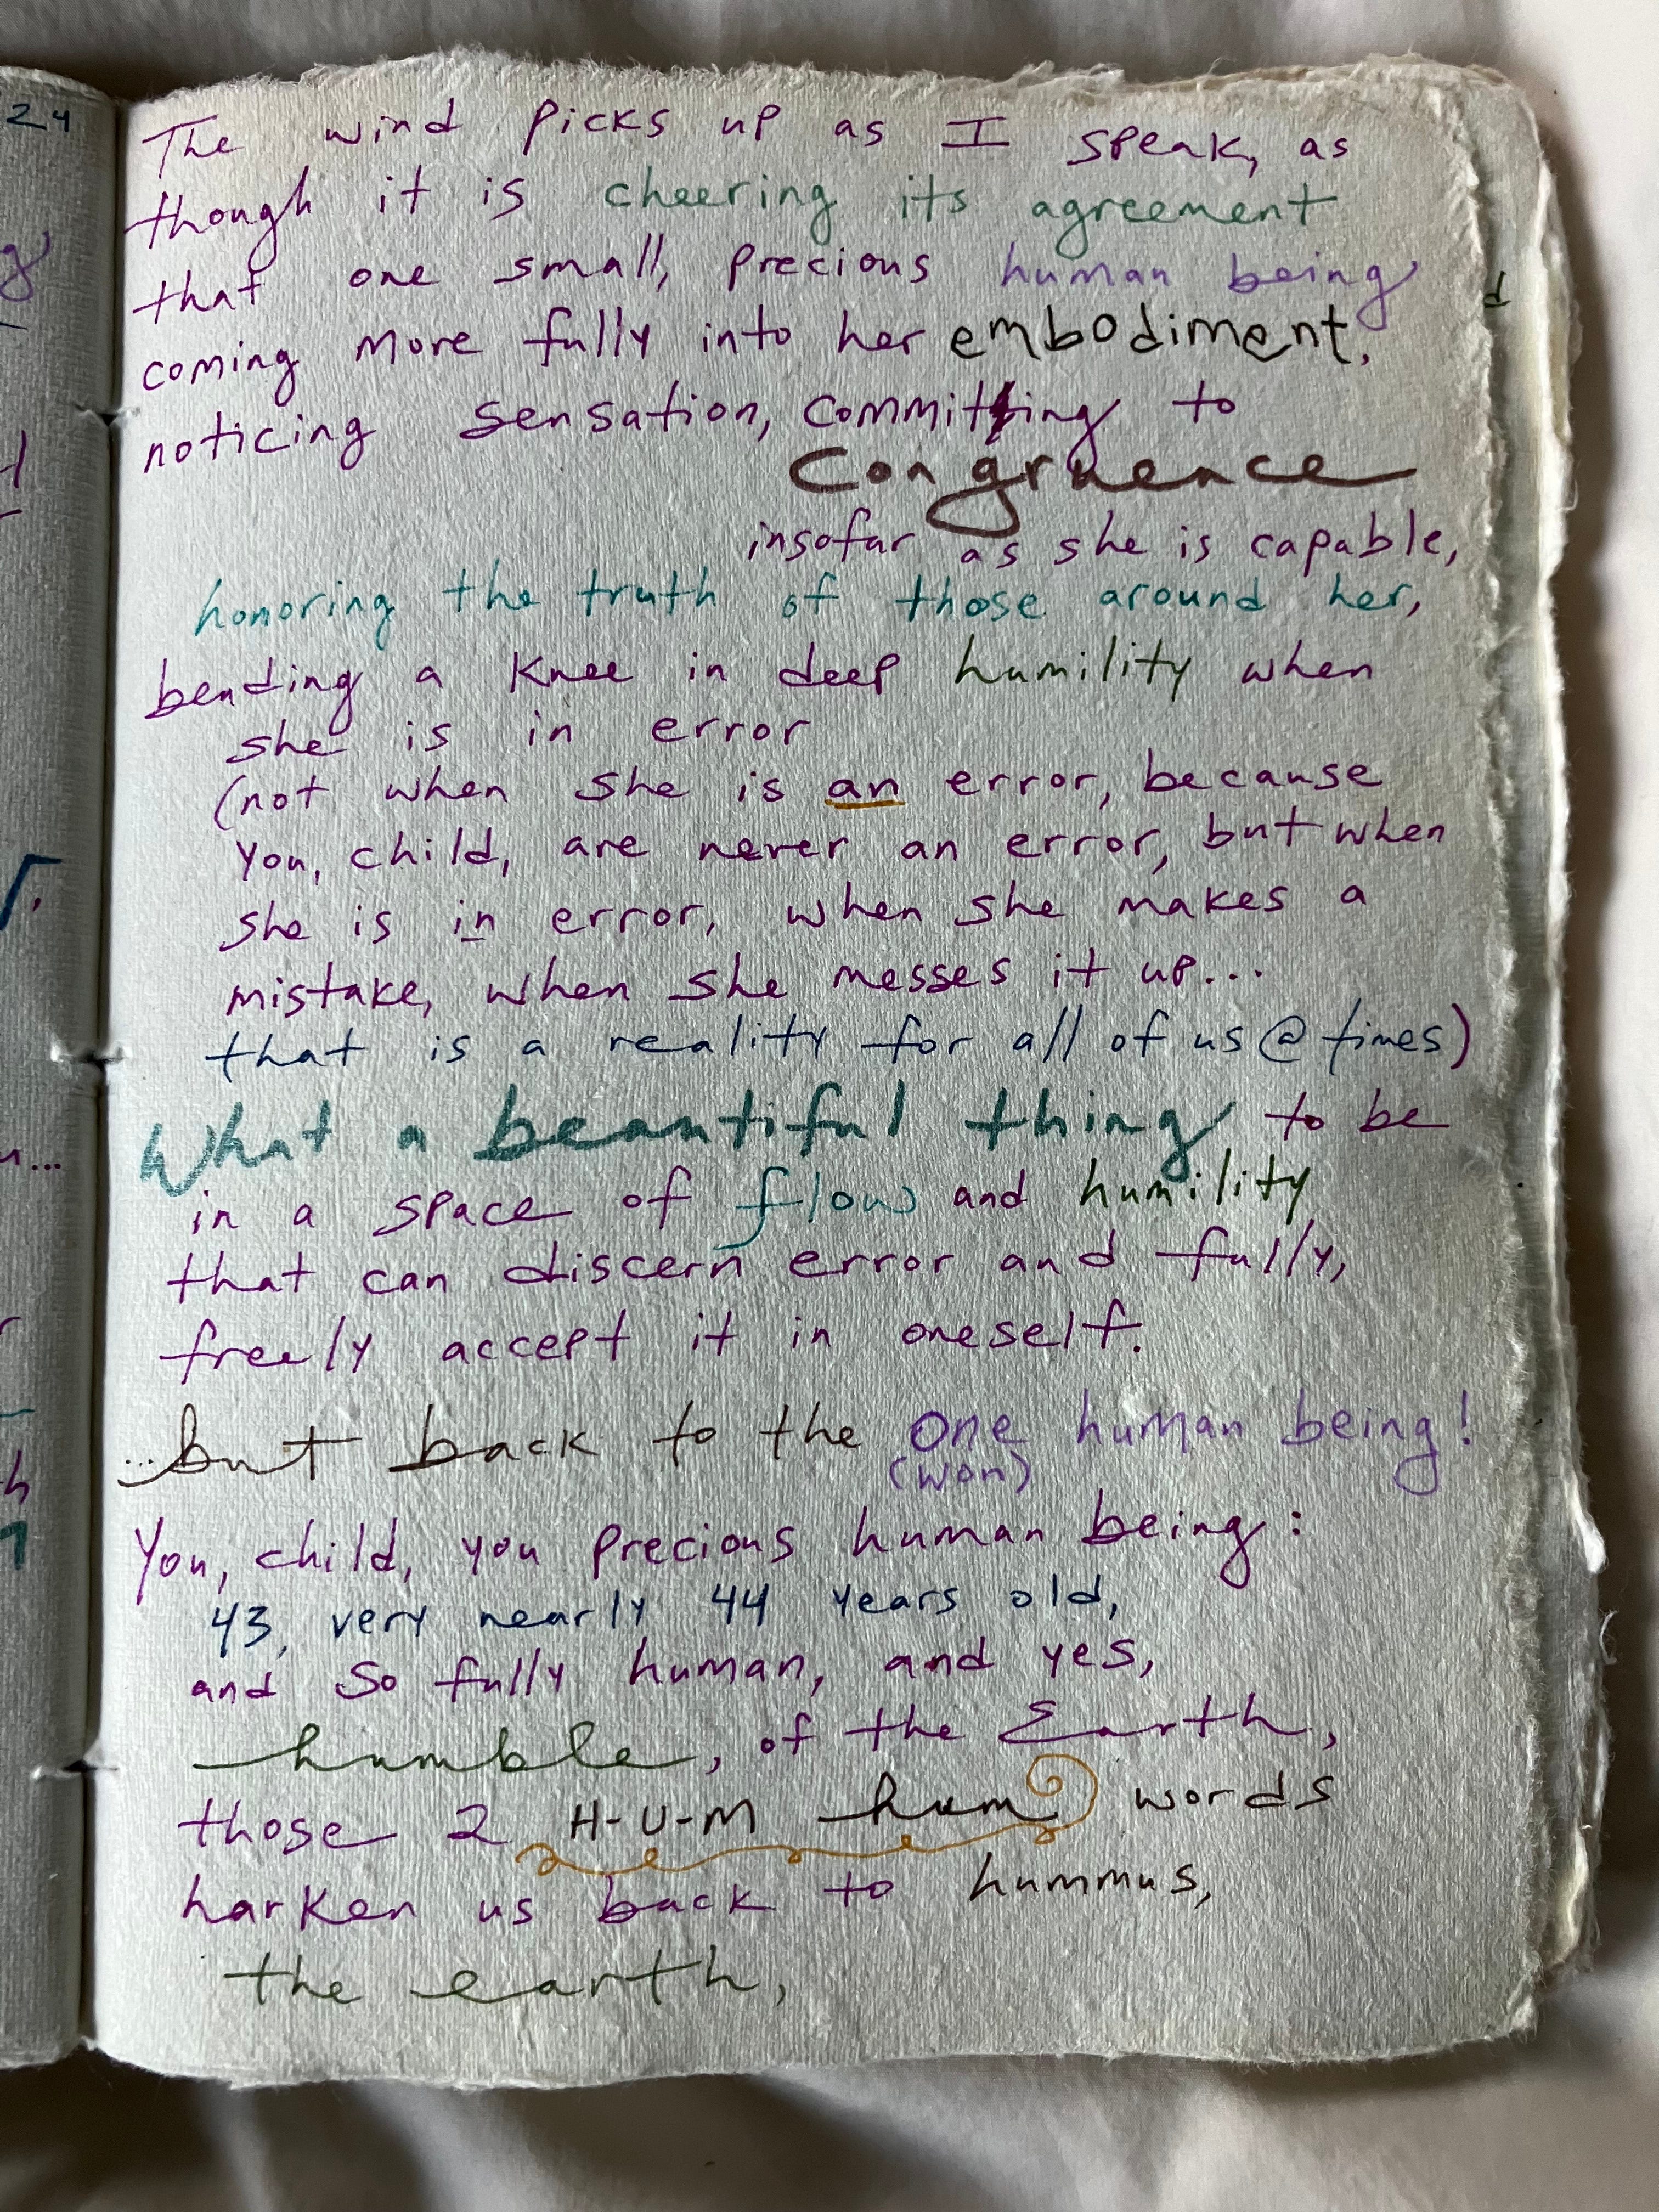 24
The wind picks up as I speak, as
though it is cheering its agreement
that one small, precious human being
coming more fully into her embodiment,
noticing sensation, committing to
Congruence
insofar as she is capable,
honoring the truth of those around her,
bending a knee in deep humility when
she is in error
(not when she is an error, because
you, child, are never an error, but when
she is in error, when she makes a
mistake, when she messes it up...
that is a reality for all of us @ times)
What a beautiful thing to be
in a space of flow and humility
that can discern error and fully,
freely accept it in oneself.
...but back to the one human being!
(won)
You, child, you precious human being:
43, very nearly 44 years old,
and so fully human, and yes,
humble, of the Earth,
those 2 H-U-M hum words
harken us back to hummus,
the earth,